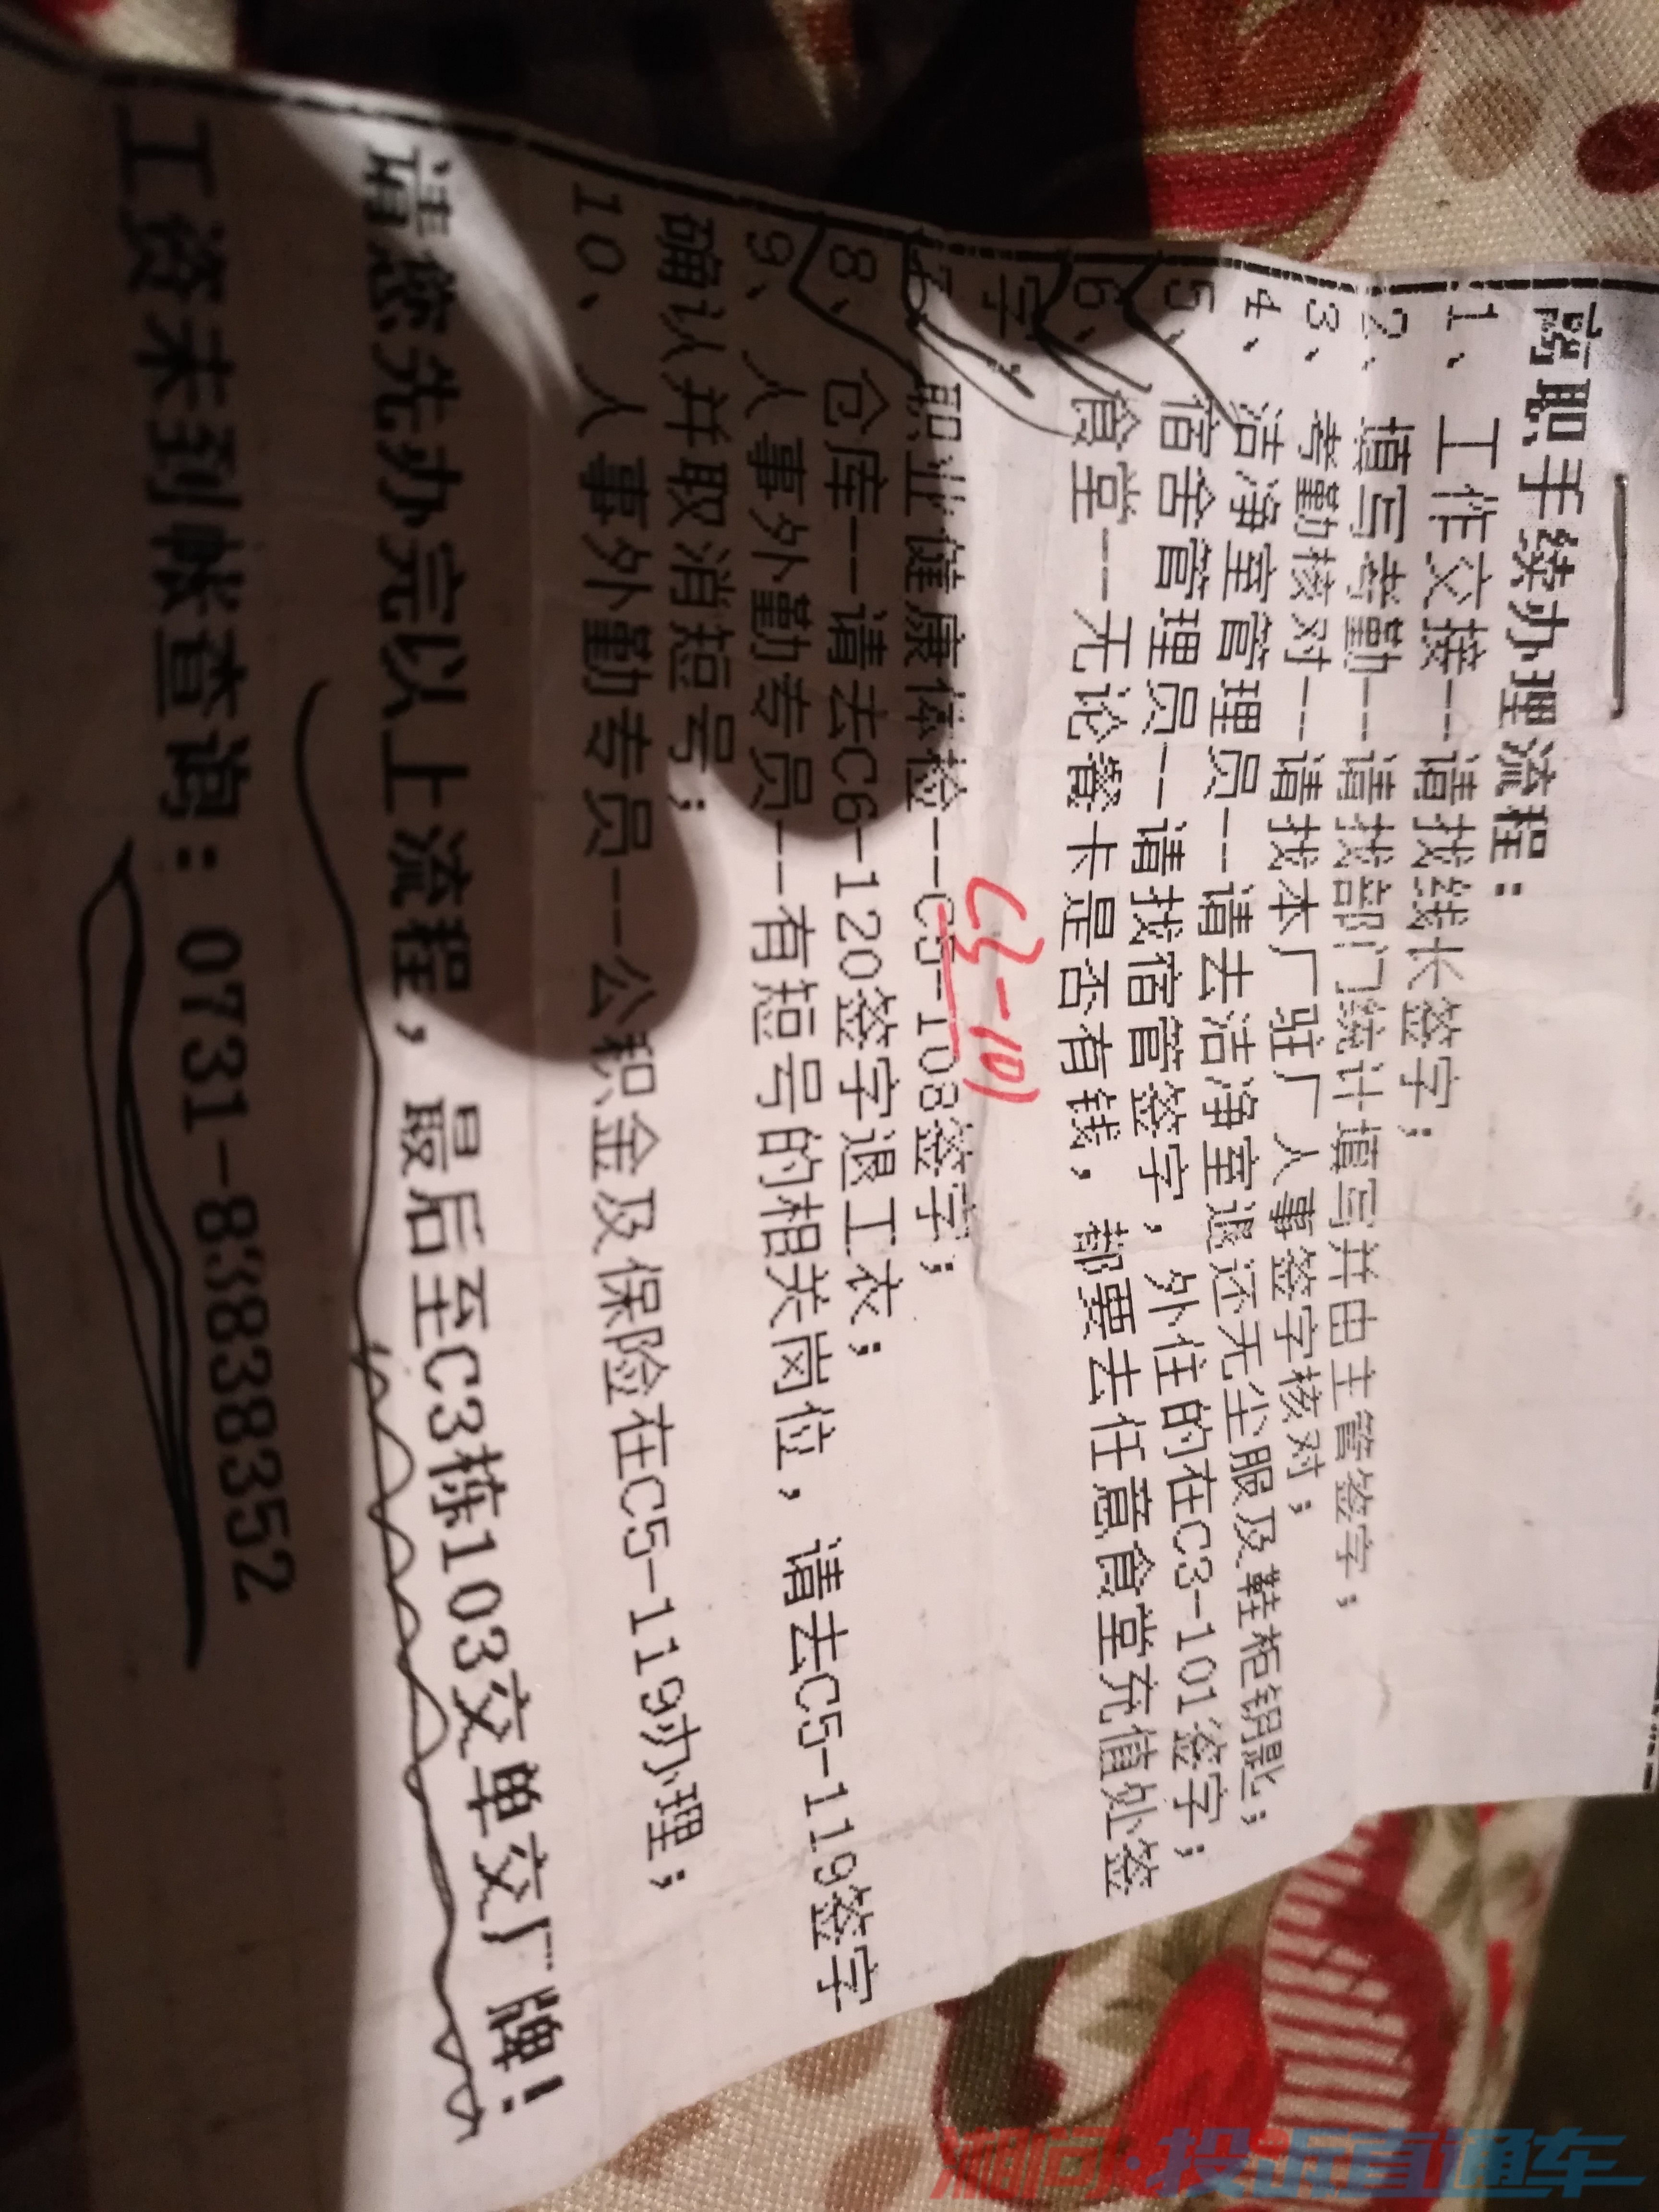 离职手续办理流程：
1、工作交接--请找线长签字；
2、填写考勤--请找部门统计填写并由主管签字；
3、考勤核对--请找本厂驻厂人事签字核对；
4、洁净室管理员--请去洁净室退还无尘服及鞋柜钥匙；
5、宿舍管理员--请找宿管签字，外住的在C3-101签字；
6、食堂--无论餐卡是否有钱，都要去任意食堂充值处签
字；
C3-101
7、职业健康体检--C5-108签字；
8、仓库--请去C6-120签字退工衣；
9、人事外勤专员--有照号的相关岗位，请去C5-119签字
确认并取消照号；
10、人事外勤专员--公积金及保险在C5-119办理；
请您先办完以上流程，最后至C3栋103交单交厂牌！
工资未到帐查询：0731-83838352
湘问·投诉直通车